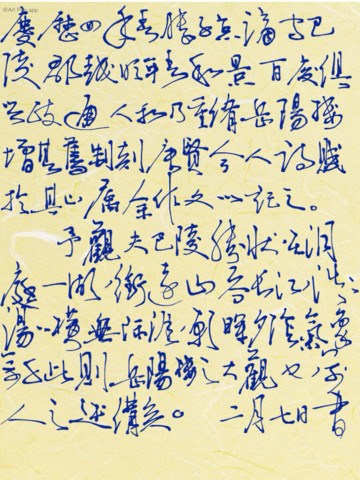 慶歷四年春滕子京謫守巴
陵郡越明年春和景百廢俱
興政通人和乃重脩岳陽樓
增其舊制刻唐賢今人詩賦
於其上屬余作文以記之。
予觀夫巴陵勝狀在洞
庭一湖銜遠山吞長江浩浩
湯湯橫無際涯朝暉夕陰氣象
萬千此則岳陽樓之大觀也前
人之述備矣。 二月七日書